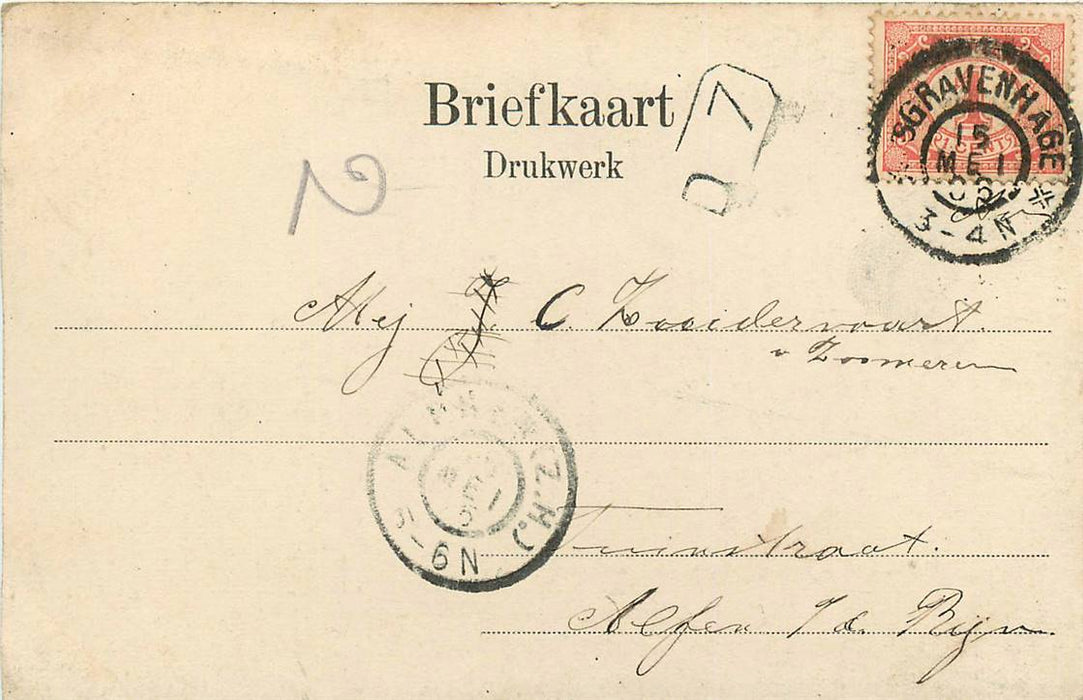 Briefkaart
Drukwerk
2
7
D
1 CENT
SGRAVENHAGE
15
MEI
05
3-4N
Mej C. Zooidervaart.
v Zoomeren
ALPHEN (Z.H.)
MEI
5
5-6N
Tuinstraat.
Alfen a/d. Rijn.